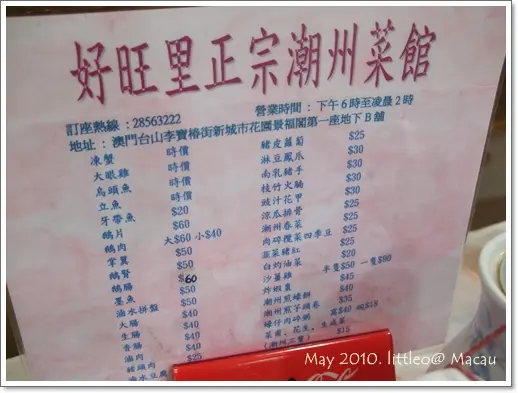 好旺里正宗潮州菜館
訂座熱線：28563222
營業時間：下午6時至凌晨2時
地址：澳門台山李寶椿街新城市花園景福閣第一座地下B舖
凍蟹 時價
大眼雞 時價
烏頭魚 時價
立魚 時價
牙帶魚 $20
鵝片 $60
鵝肉 大$60 小$40
掌翼 $50
鵝腎 $60
鵝腸 $50
墨魚 $50
滷水拼盤 $50
大腸 $40
生腸 $40
滷肉
豬頭肉
滷水豆腐
豬皮蘿蔔 $25
淋豆鳳爪 $30
南乳豬手 $30
枝竹火腩 $30
豉汁花甲 $30
涼瓜排骨 $25
潮州春菜 $25
肉碎欖菜四季豆 $25
韭菜豬紅 $20
白灼油菜
沙薑雞 半隻$50 一隻$90
炸蝦棗 $45
潮州煎蠔餅 $40
潮州煎芋頭卷 $35
蠔仔肉碎粥 窩$40 碗$18
菜甫，花生，生咸菜 $15
(潮州三寶)
May 2010. littleo@ Macau